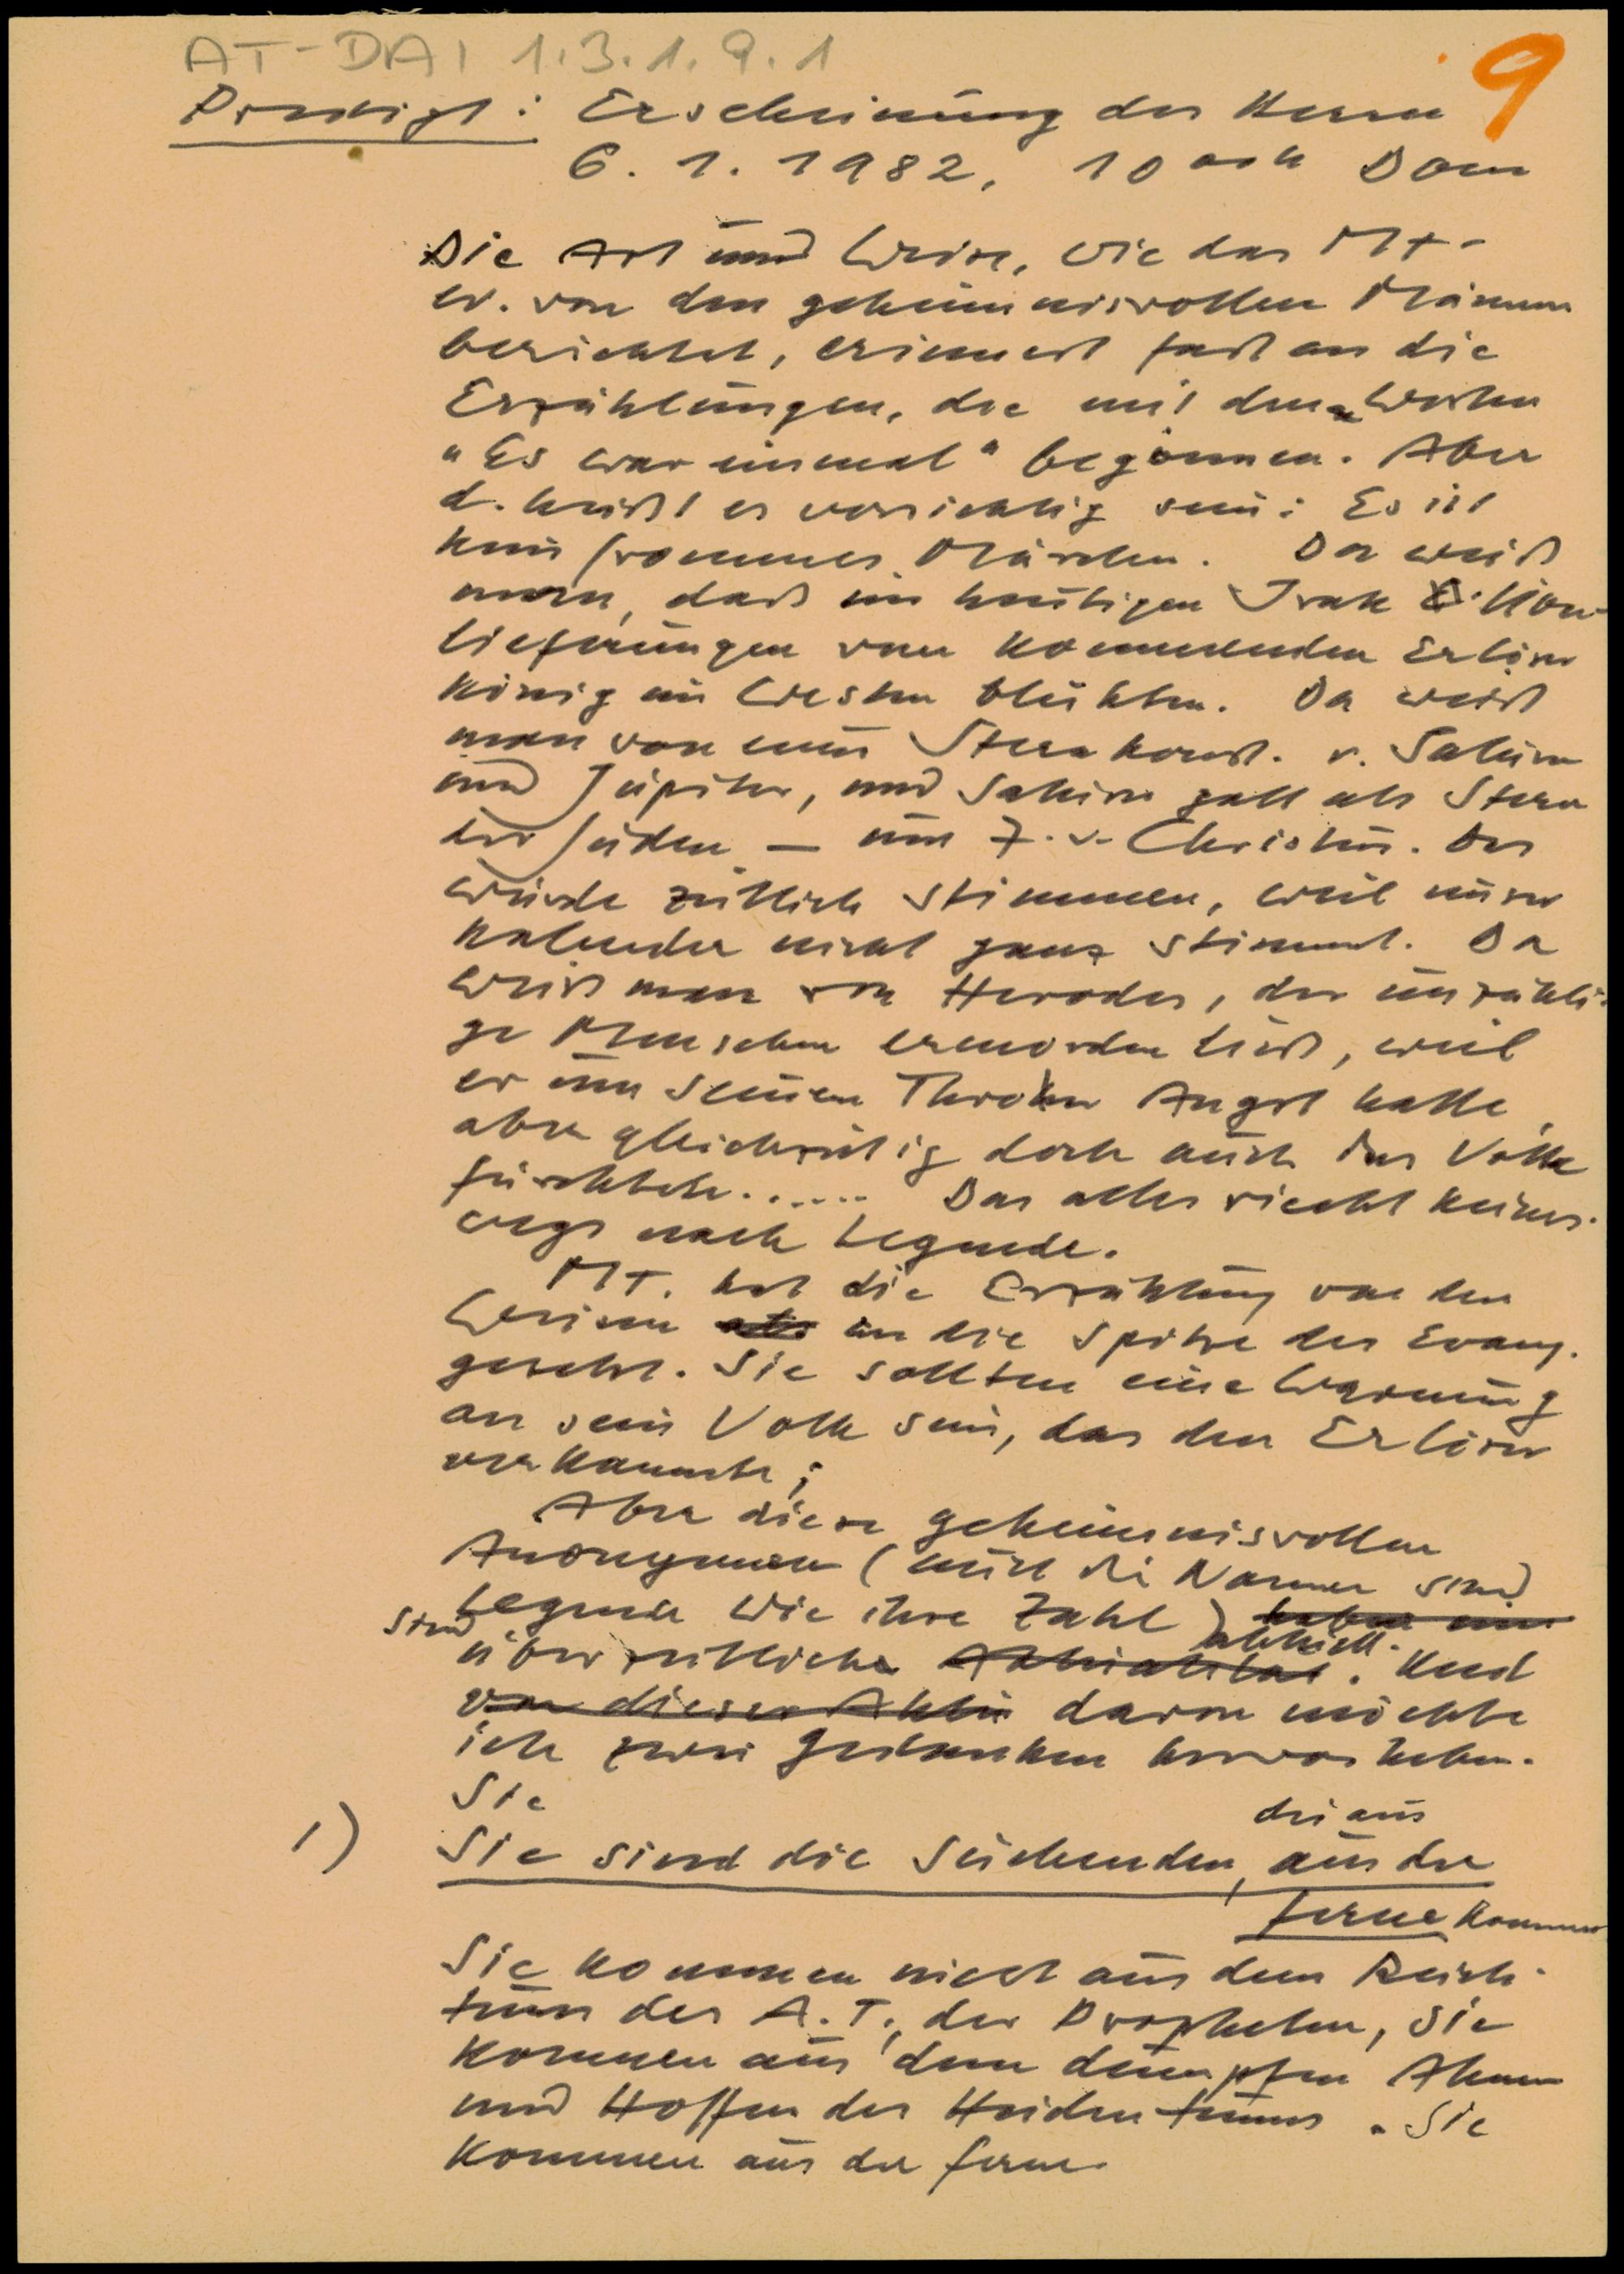 AT-DAI 1.3.1.9.1
9
Predigt: Erscheinung des Herrn
6. 1. 1982, 10 Dom
Die Art und Weise, wie das Mt-
ev. von den geheimnisvollen Männern
berichtet, erinnert fast an die
Erzählungen, die mit den Worten
"Es war einmal" beginnen. Aber
d. heißt es vorsichtig sein: Es ist
kein frommes Märchen. Da weiß
man, daß im heutigen Irak
lieferungen vom kommenden Erlöser
könig im Westen blühten. Da weiß
man von einer Sternkonst. v. Saturn
und Jupiter, und Saturn galt als Stern
der Juden – um 7. v. Christus. Das
würde zeitlich stimmen, weil unser
Kalender nicht ganz stimmt. Da
weiß man von Herodes, der unzähli-
ge Menschen ermorden ließ, weil
er um seinen Thron Angst hatte,
aber gleichzeitig doch auch das Volk
fürchtete...... Das alles riecht keines-
wegs nach Legende.
Mt. hat die Erzählung von den
Weisen an die Spitze des Evang.
gesetzt. Sie sollten eine Warnung
an sein Volk sein, das den Erlöser
verkannte;
Aber diese geheimnisvollen
Anonymen (auch die Namen sind
Legende wie ihre Zahl) haben eine
sind überzeitliche Aktualität aktuell. Und
von dieser davon möchte
ich zwei Gedanken hervorheben.
Sie
1) Sie sind die Suchenden, die aus aus der
Ferne kommen
Sie kommen nicht aus dem Reich-
tum des A.T., der Propheten, sie
kommen aus dem dumpfen Ahnen
und Hoffen des Heidentums. Sie
kommen aus der Ferne.